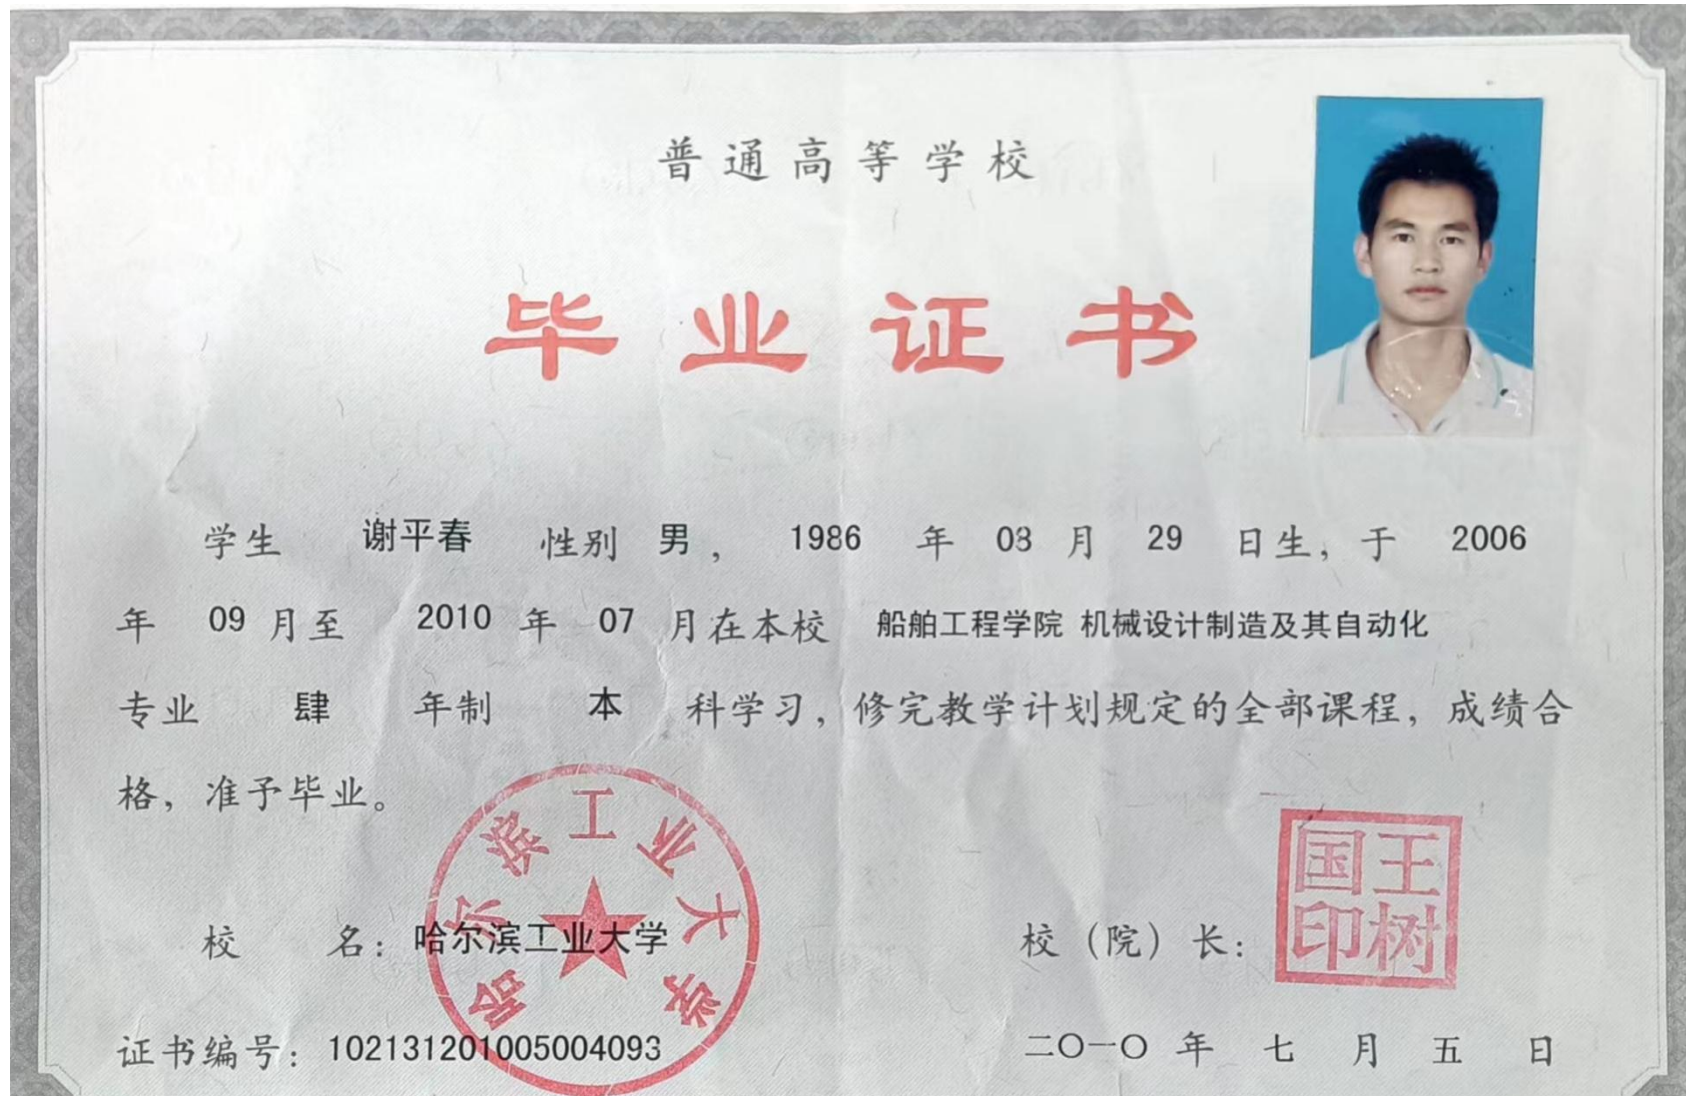 普通高等学校
毕业证书
学生 谢平春 性别 男，1986 年 03 月 29 日生，于 2006
年 09 月至 2010 年 07 月在本校 船舶工程学院 机械设计制造及其自动化
专业 肆 年制 本 科学习，修完教学计划规定的全部课程，成绩合
格，准予毕业。
哈尔滨工业大学
校 名：哈尔滨工业大学
校（院）长：
王树国印
证书编号：102131201005004093
二〇一〇 年 七 月 五 日